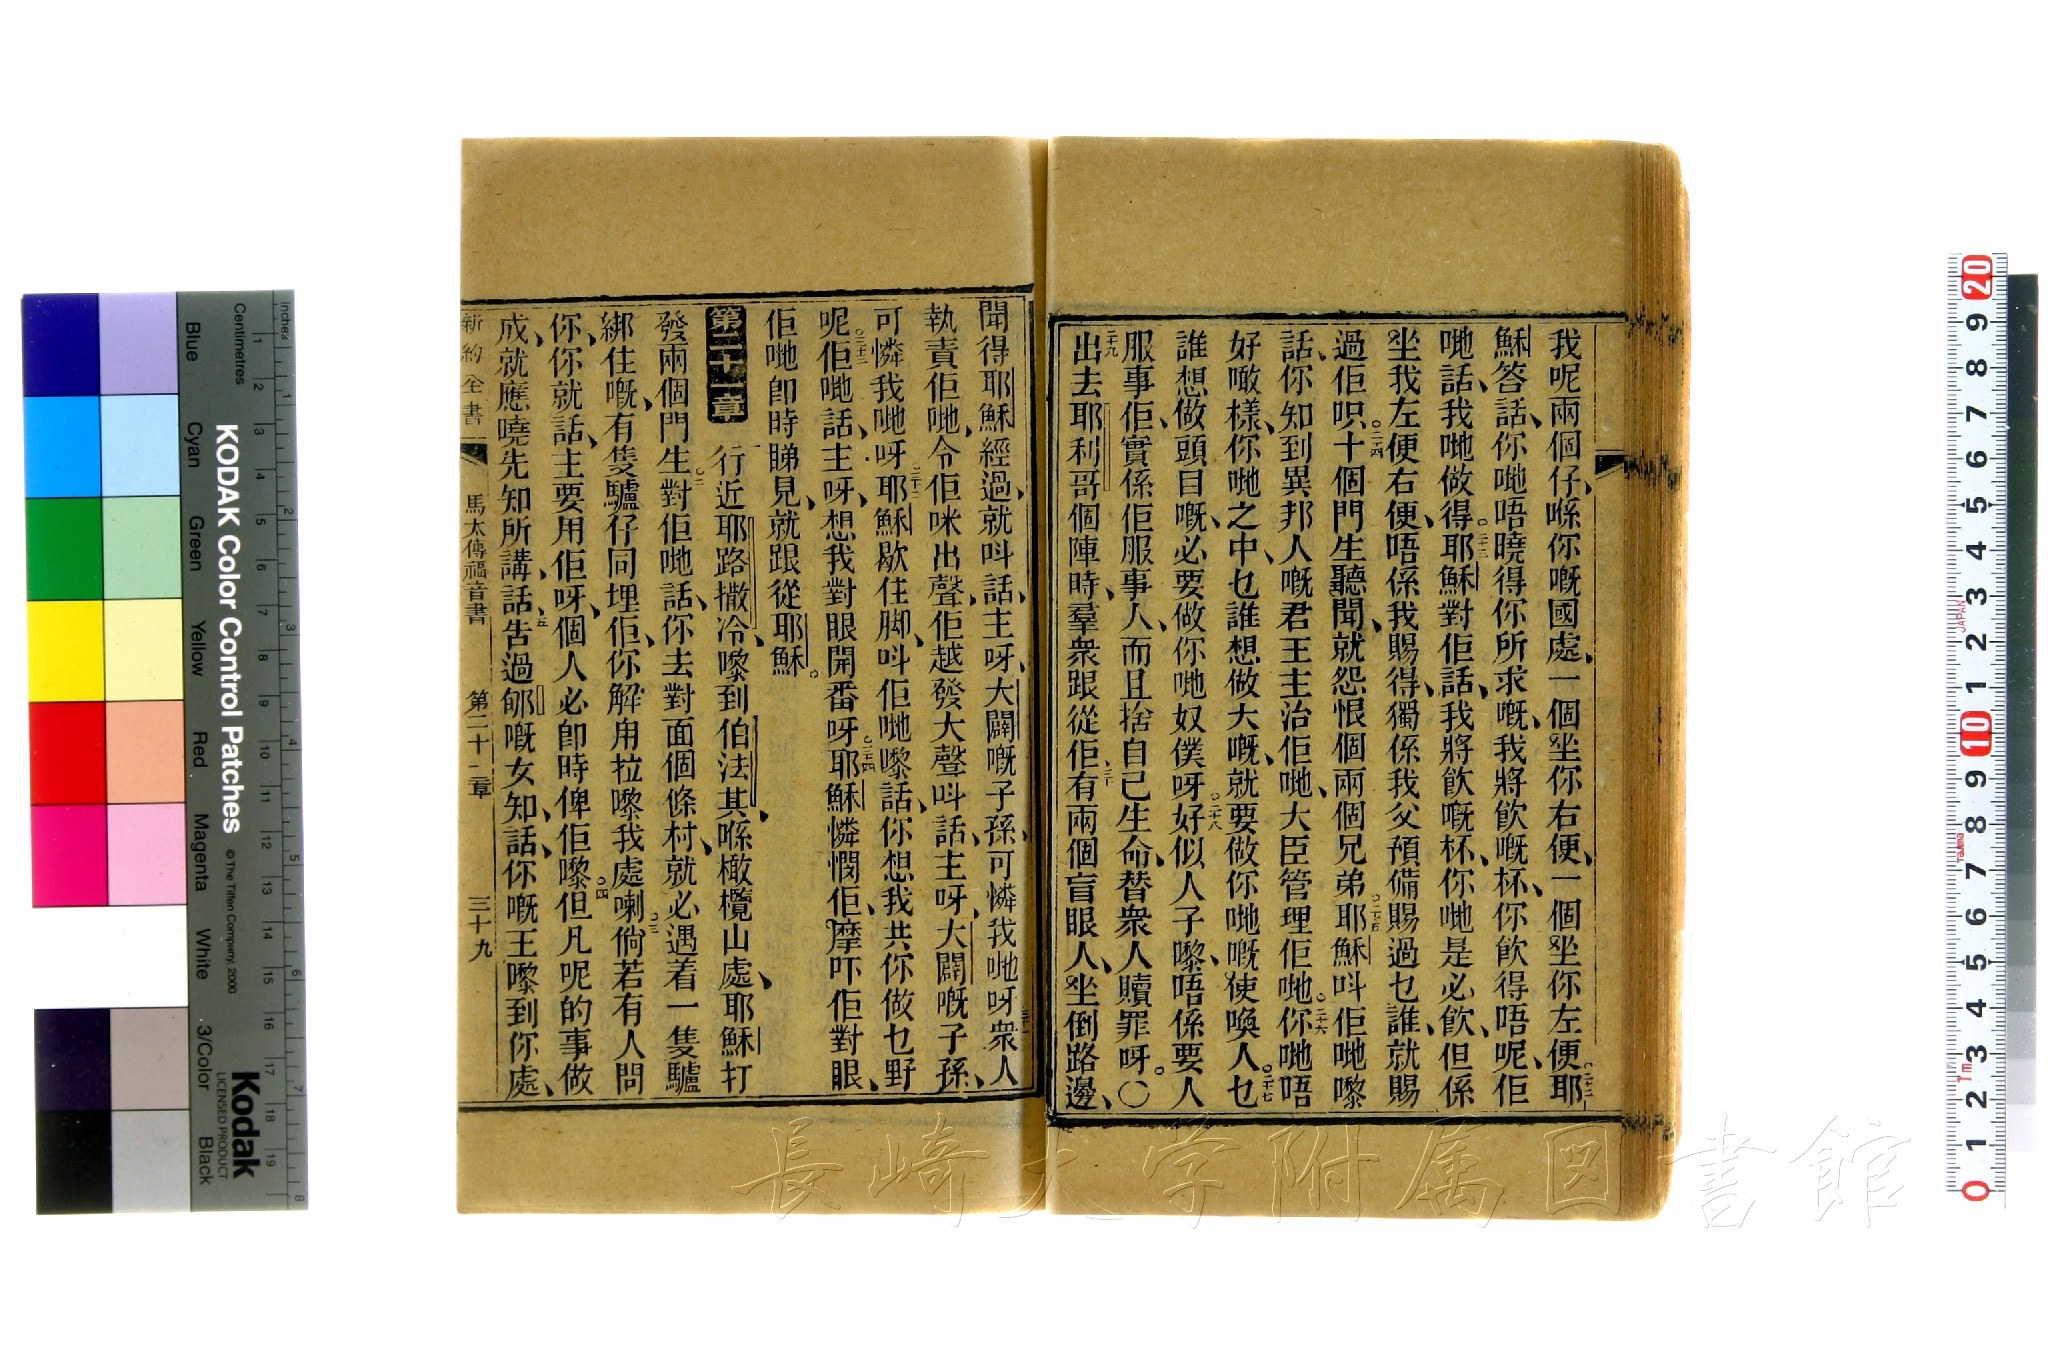 我呢兩個仔、喺你嘅國處、一個坐你右便、一個坐你左便、○二十二耶
穌答話、你哋唔曉得你所求嘅、我將飲嘅杯、你飲得唔呢、佢
哋話、我哋做得、○二十三耶穌對佢話、我將飲嘅杯、你哋是必飲、但係
坐我左便右便、唔係我賜得、獨係我父預備賜過乜誰、就賜
過佢呮、○二十四十個門生聽聞、就怨恨個兩個兄弟、○二十五耶穌呌佢哋嚟
話、你知到異邦人嘅君王主治佢哋、大臣管理佢哋、○二十六你哋唔
好噉樣、你哋之中、乜誰想做大嘅、就要做你哋嘅使喚人乜、○二十七
誰想做頭目嘅、必要做你哋奴僕呀、○二十八好似人子嚟、唔係要人
服事佢、實係佢服事人、而且捨自己生命、替衆人贖罪呀。〇
二十九出去耶利哥個陣時、羣衆跟從佢、三十有兩個盲眼人、坐倒路邊、
聞得耶穌經過、就呌話、主呀、大闢嘅子孫、可憐我哋呀、三十一衆人
執責佢哋、令佢咪出聲、佢越發大聲呌話、主呀、大闢嘅子孫、
可憐我哋呀、○三十二耶穌歇住脚、呌佢哋嚟話、你想我共你做乜野
呢、○三十三佢哋話、主呀、想我對眼開番呀、○三十四耶穌憐憫佢、摩吓佢對眼、
佢哋卽時睇見、就跟從耶穌。
第二十一章 行近耶路撒冷、嚟到伯法其、喺橄欖山處、耶穌打
發兩個門生、○二對佢哋話、你去對面個條村、就必遇着一隻驢
綁住嘅、有隻驢仔同埋佢、你解甩拉嚟我處喇、○三倘若有人問
你、你就話、主要用佢呀、個人必卽時俾佢嚟、○四但凡呢的事做
成、就應曉先知所講話、○五吿過郇嘅女知話、你嘅王嚟到你處、
新約全書 馬太傳福音書 第二十一章 三十九
KODAK Color Control Patches
© The Tiffen Company, 2000
Kodak
LICENSED PRODUCT
Centimetres
Inches
Blue Cyan Green Yellow Red Magenta White 3/Color Black
1 2 3 4 5 6 7 8 9 10 11 12 13 14 15 16 17 18 19
1 2 3 4 5 6 7 8
20 9 8 7 6 5 4 3 2 1 10 9 8 7 6 5 4 3 2 1 0
JAPAN
長崎大学附属図書館